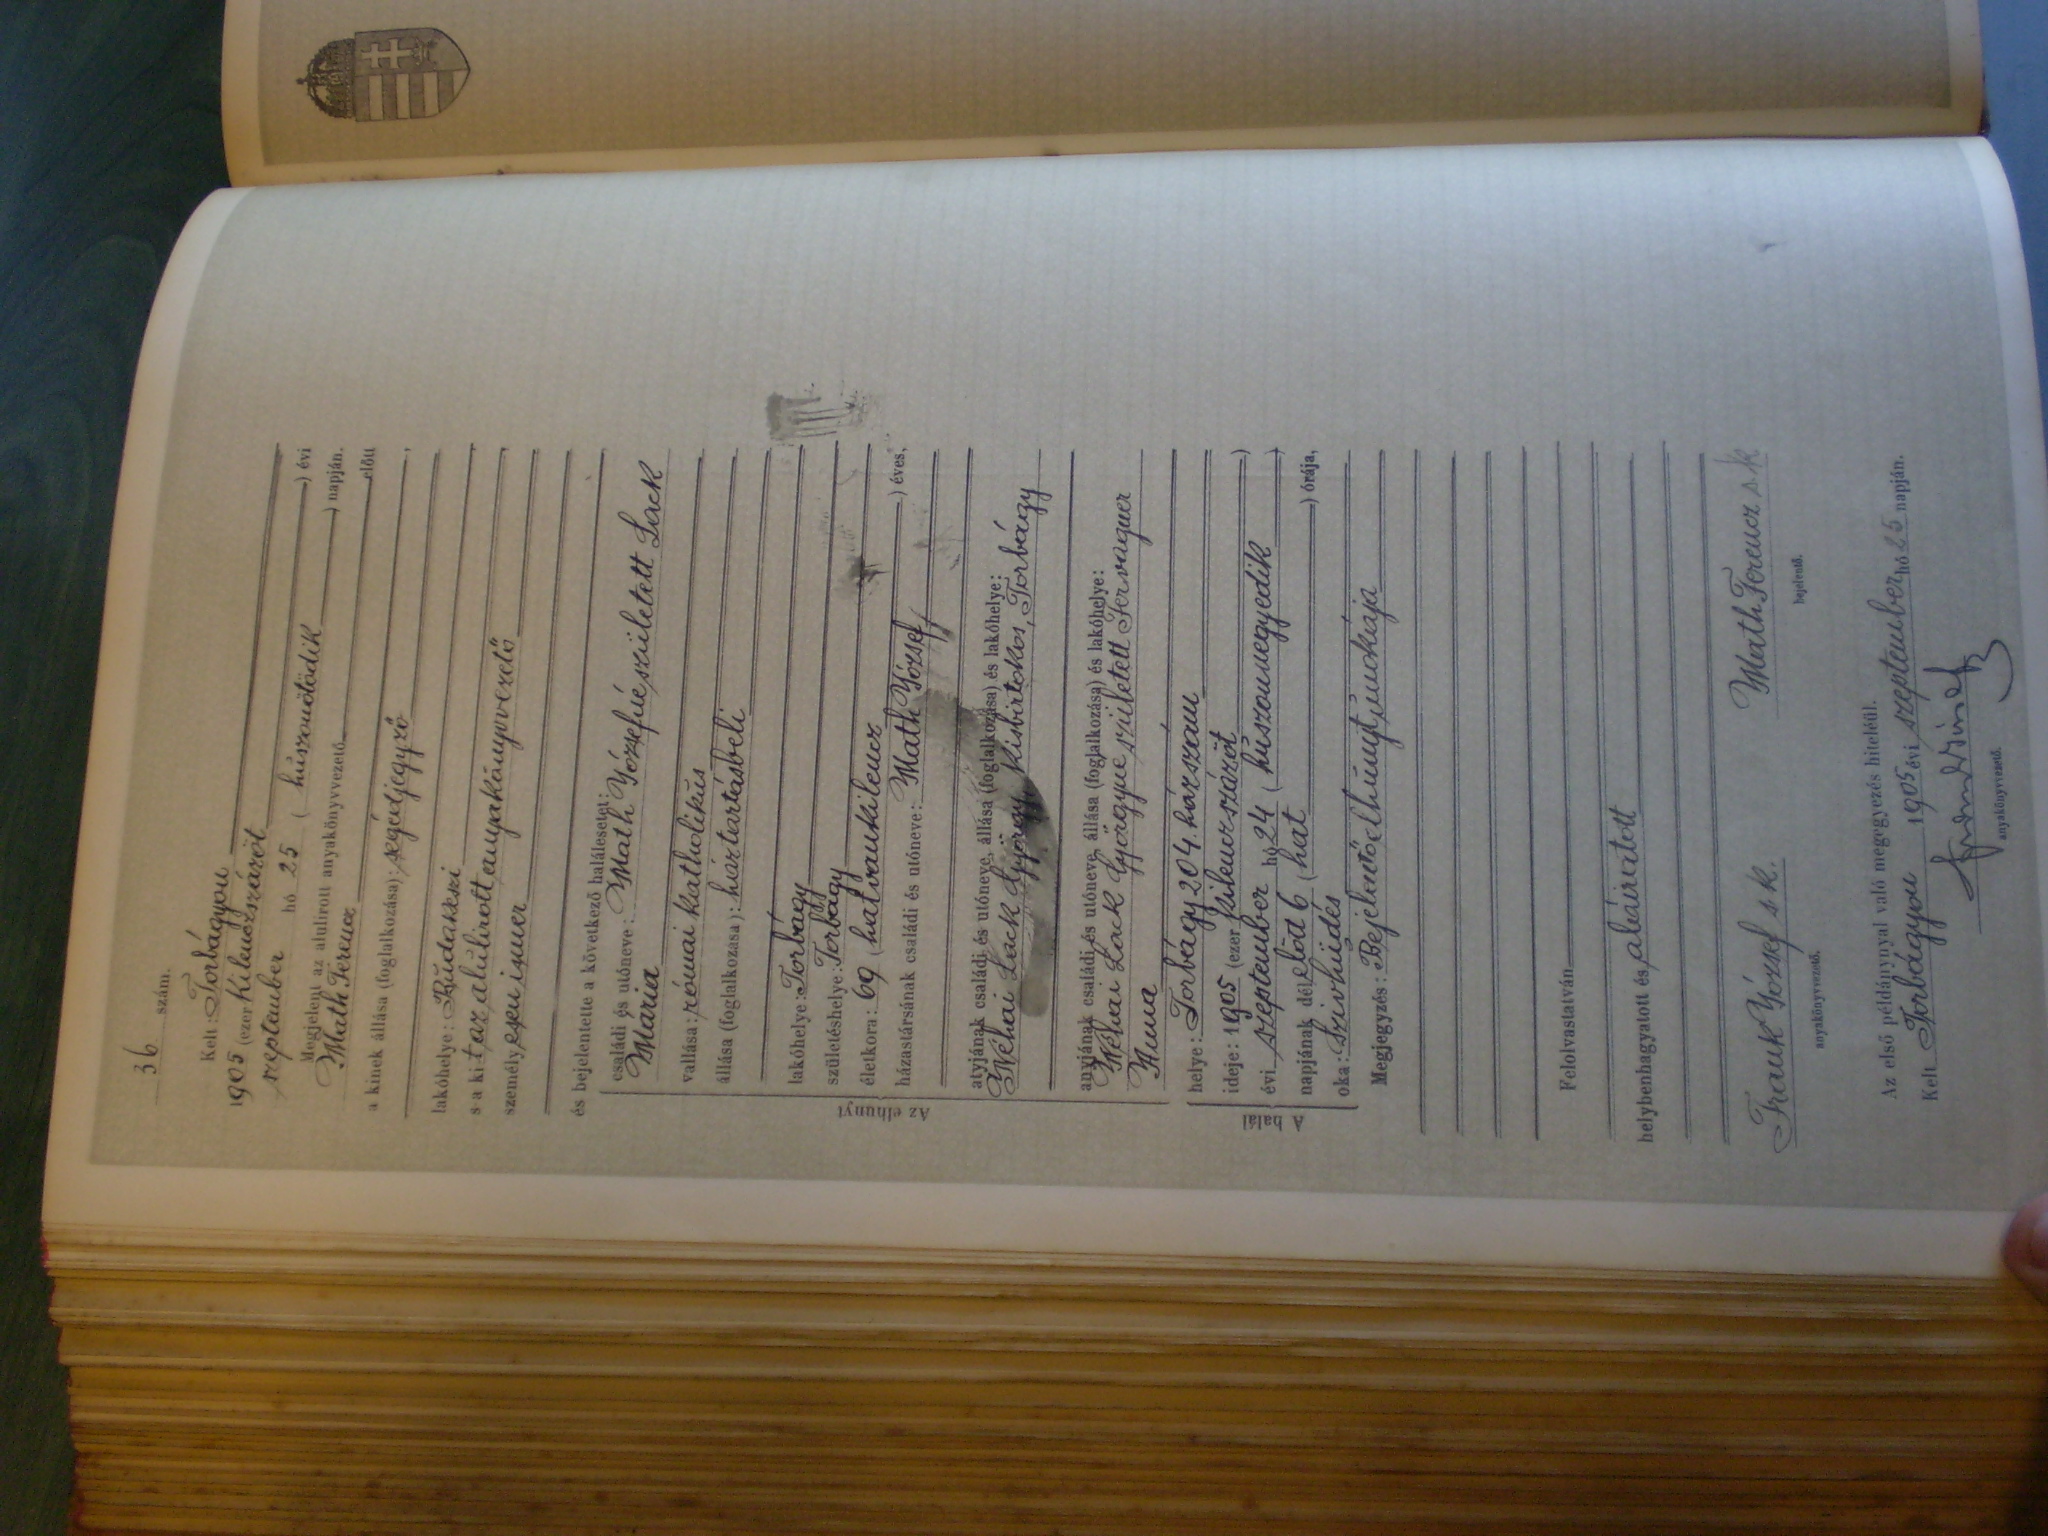 36 szám.
Kelt: Torbágyon
1905 (ezer kilenczszázöt
szeptember hó 25 (huszonötödik) évi
Megjelent az alulirott anyakönyvvezető) napján.
Math Ferencz előtt
a kinek állása (foglalkozása): segédjegyző,
lakóhelye: Budakeszi
s a kit az alulirott anyakönyvvezető,
személyesen ismer
és bejelentette a következő halálesetet:
Az elhunyt
családi és utóneve: Math Józsefné született Lack
Mária
vallása: római katholikus
állása (foglalkozása): háztartásbeli
lakóhelye: Torbágy
születéshelye: Torbágy
életkora: 69 (hatvankilencz) éves,
házastársának családi és utóneve: Math József
atyjának családi és utóneve, állása (foglalkozása) és lakóhelye:
Néhai Lack György kisbirtokos, Torbágy
anyjának családi és utóneve, állása (foglalkozása) és lakóhelye:
Néhai Lack Györgyne született Tervaguer
Anna
A halál
helye: Torbágy 204. házszám
ideje: 1905 (ezer kilenczszázöt)
évi szeptember hó 24 (huszonnegyedik)
napjának dél előtt 6 (hat) órája,
oka: Szivhűdés
Megjegyzés: Bejelentő elhunyt unokája
Felolvastatván
helybenhagyatott és aláiratott
Frank József s. k. Math Ferencz s. k
anyakönyvvezető. bejelentő.
Az első példánynyal való megegyezés hiteléül.
Kelt Torbágyon 1905 évi szeptember hó 25 napján.
anyakönyvvezető.